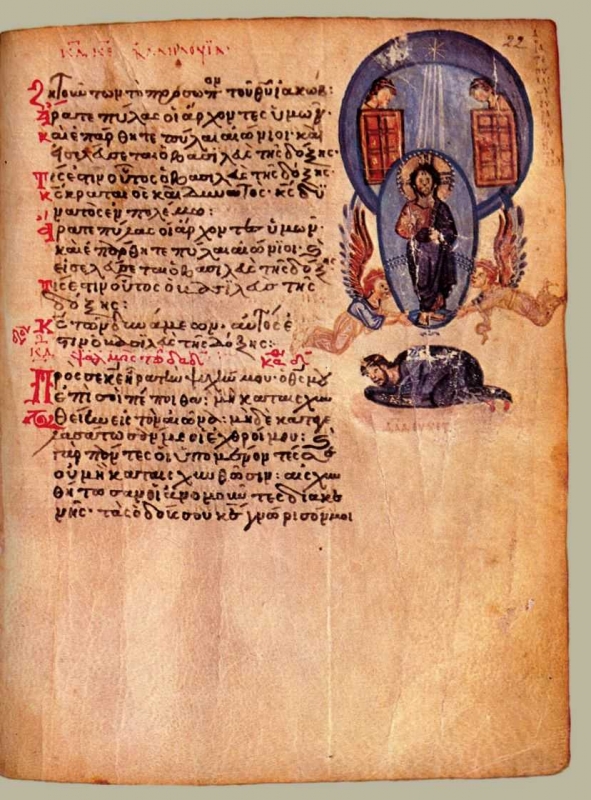 22
ζητούντων τὸ πρόσωπον τοῦ θυ ιακώβ:
Ἄρατε πύλας οἱ ἄρχοντες ὑμῶν·
καὶ ἐπάρθητε πύλαι αἰώνιοι· καὶ
εἰσελεύσεται ὁ βασιλεὺς τῆς δόξης·
Τίς ἐστιν οὗτος ὁ βασιλεὺς τῆς δόξης·
κς κραταιὸς καὶ δυνατός· κς δυ
νατὸς ἐν πολέμω:
Ἄρατε πύλας οἱ ἄρχοντες ὑμῶν·
καὶ ἐπάρθητε πύλαι αἰώνιοι· καὶ
εἰσελεύσεται ὁ βασιλεὺς τῆς δόξης
Τίς ἐστιν οὗτος ὁ βασιλεὺς τῆς
δόξης:
Κς τῶν δυνάμεων· αὐτὸς ἐ
στιν ὁ βασιλεὺς τῆς δόξης:
ψαλμὸς τῷ δαδ
Πρὸς σὲ κε ἦρα τὴν ψυχήν μου· ὁ θς μου
ἐπὶ σοὶ πέποιθα: μὴ καταισχυν
θείην εἰς τὸν αἰῶνα: μηδὲ καταγε
λασάτωσάν με οἱ ἐχθροί μου: καὶ
γὰρ πάντες οἱ ὑπομένοντές σε
οὐ μὴ καταισχυνθῶσιν: αἰσχυν
θήτωσαν οἱ ἀνομοῦντες διακε
νῆς· τὰς ὁδούς σου κε γνώρισόν μοι